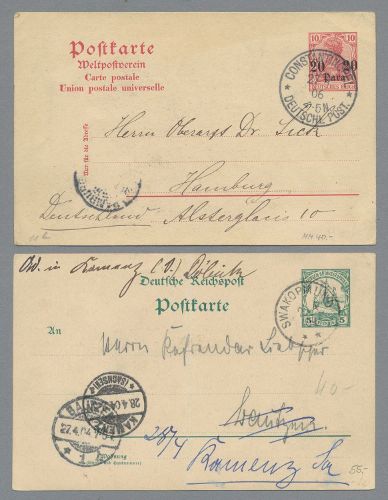 Postkarte
Weltpostverein
Carte postale
Union postale universelle
10 10
20 20
Para
CONSTANTINOPEL
06
DEUTSCHE POST.
Nur für die Adresse
Herrn Oberarzt Dr. Sick
Hamburg
Deutschland Alsterglacis 10
HAMBURG
Ad. in Kamenz
Deutsche Reichspost
Postkarte
An
5 5
SWAKOPMUND
Herrn
Bautzen
BAUTZEN
27.4.04
KAMENZ
28.4.04
(SACHSEN)
28/4 Kamenz Sa
Wohnung
40.-
55.-